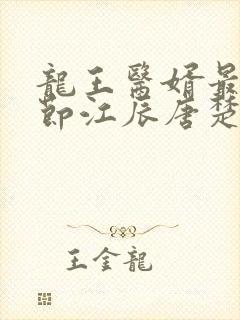 龍王醫婿最
節江辰唐楚
王金龍